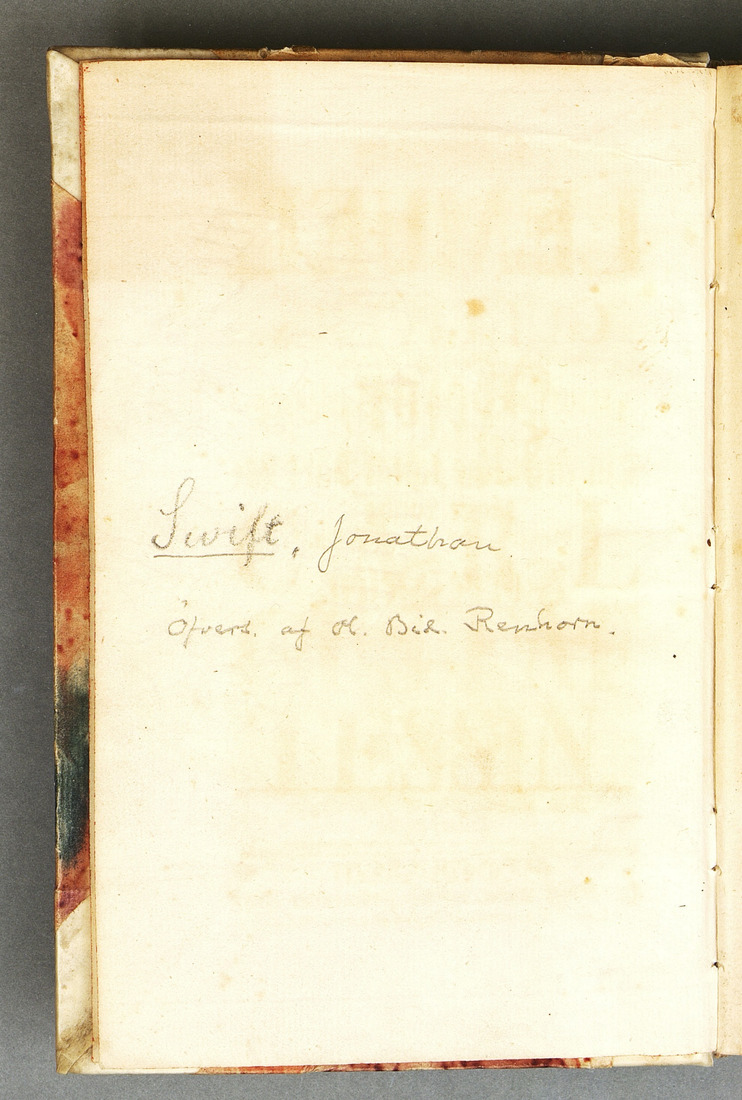 Swift, Jonathan.
Öfvers. af Ol. Bid. Renhorn.